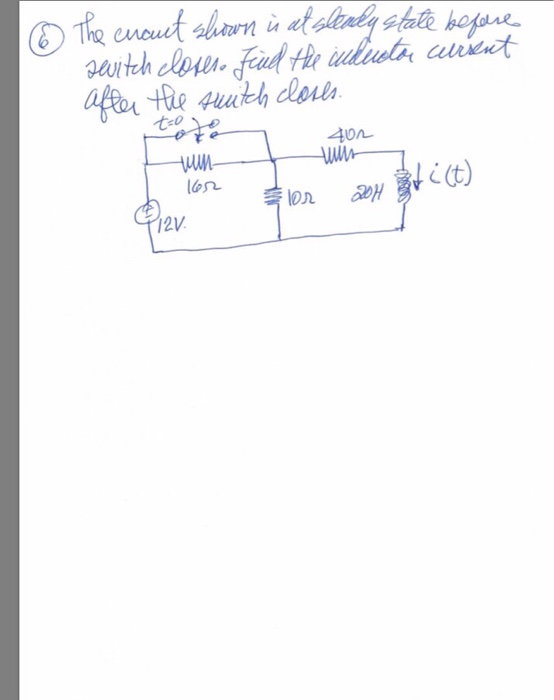 ⑥ The circuit shown is at steady state before
switch closes. Find the inductor current
after the switch closes.
t=0
40Ω
16Ω
i(t)
10Ω
20H
12V.